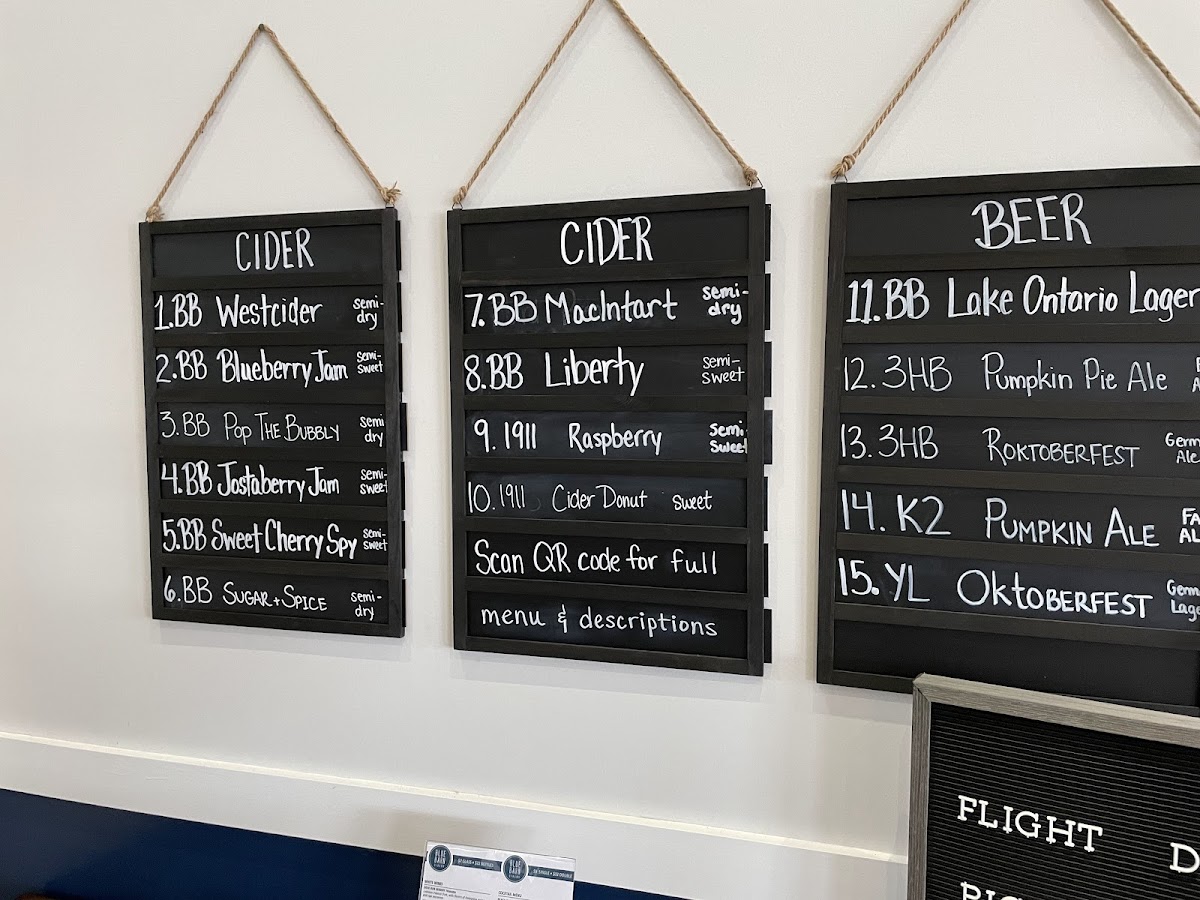 CIDER
1.BB Westcider semi-dry
2.BB Blueberry Jam semi-sweet
3.BB POP THE BUBBLY semi dry
4.BB Jostaberry Jam semi-sweet
5.BB Sweet Cherry Spy semi-sweet
6.BB SUGAR + SPICE semi-dry
CIDER
7.BB MacIntart semi-dry
8.BB Liberty semi-sweet
9.1911 Raspberry Semi-Sweet
10.1911 Cider Donut sweet
Scan QR code for full
menu & descriptions
BEER
11.BB Lake Ontario Lager
12.3HB Pumpkin Pie Ale
13.3HB ROKTOBERFEST Germ Ale
14.K2 PUMPKIN ALE
15.YL OKTOBERFEST Germ Lage
FLIGHT D
BLUE BARN
BLUE BARN